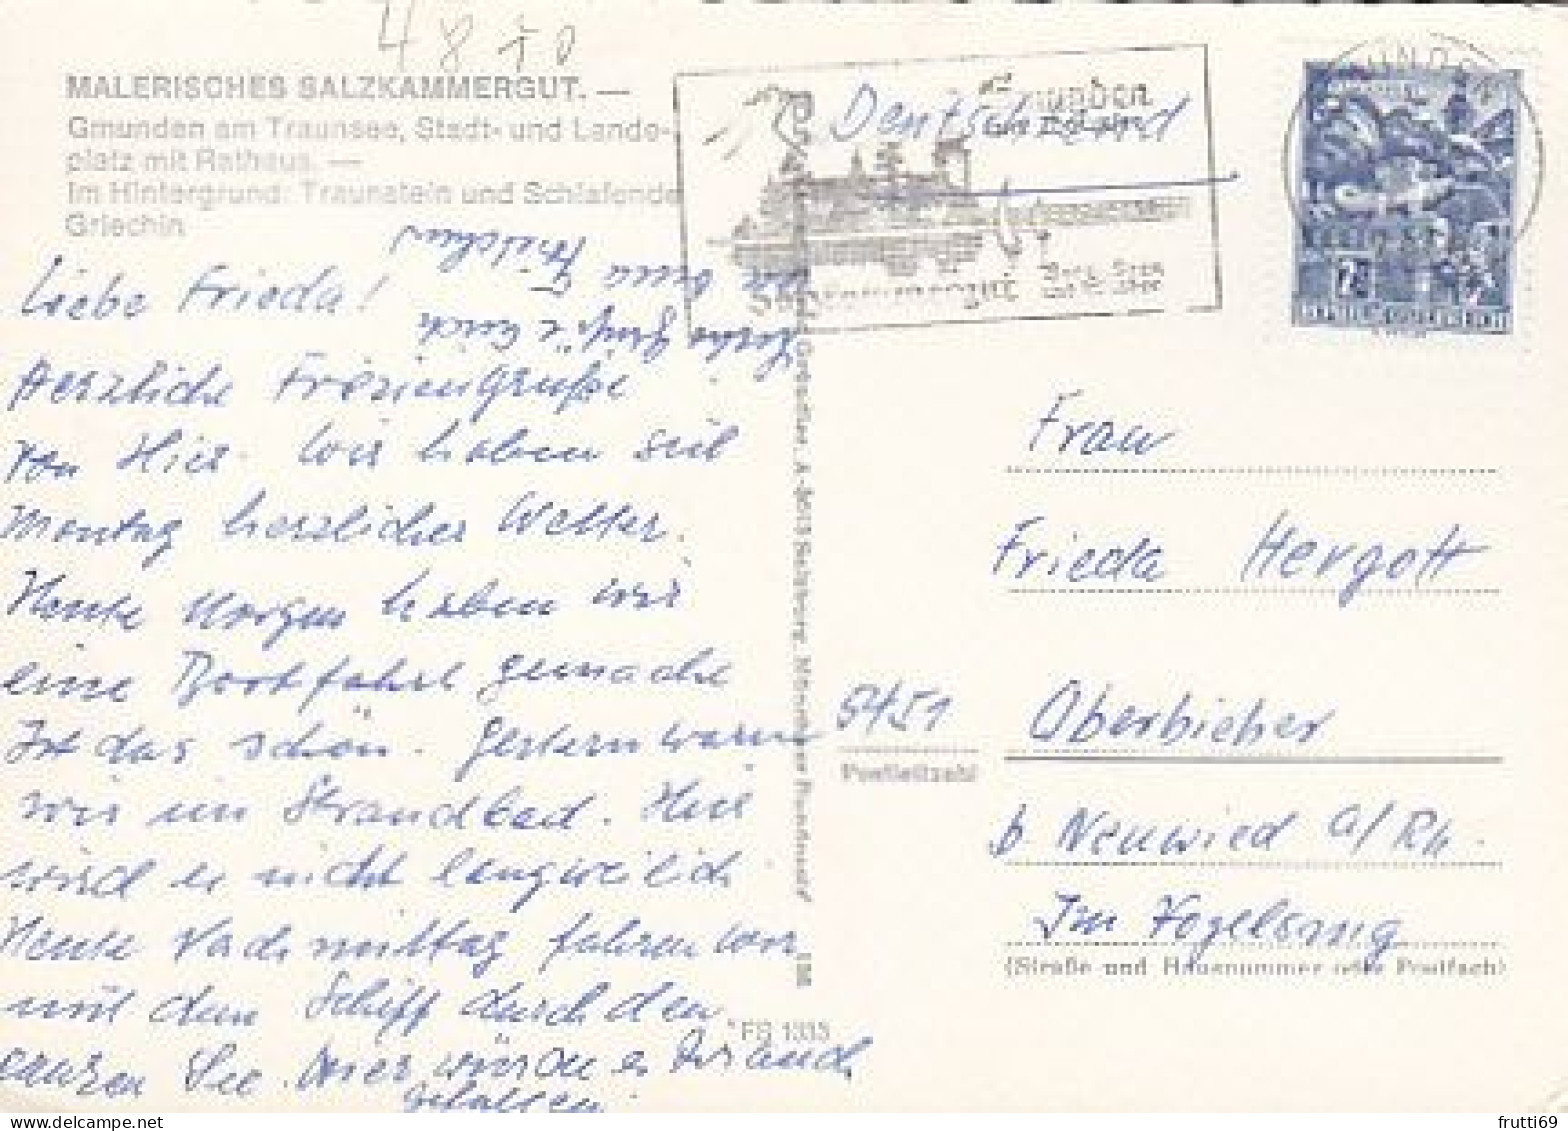 4810
MALERISCHES SALZKAMMERGUT. —
Gmunden am Traunsee, Stadt- und Lande-
platz mit Rathaus. —
Im Hintergrund: Traunstein und Schlafende
Griechin
Liebe Frieda!
Herzliche Feriengrüße
von Hier. Wir haben seit
Montag herzliches Wetter.
Heute Morgen haben wir
eine Bootfahrt gemacht
Ist das schön. Gestern waren
wir im Strandbad. Hier
wird es nicht langweilich
Heute Nachmittag fahren wir
mit dem Schiff durch den
ganzen See. Hier würde es Dir auch
gefallen.
Gmunden
Deutschland
Salzkammergut
7
Frau
Frieda Hergott
5451 Oberbieber
Postleitzahl
b. Neuwied a/Rh.
Im Vogelsang
(Straße und Hausnummer oder Postfach)
*FB 1333
frutti69